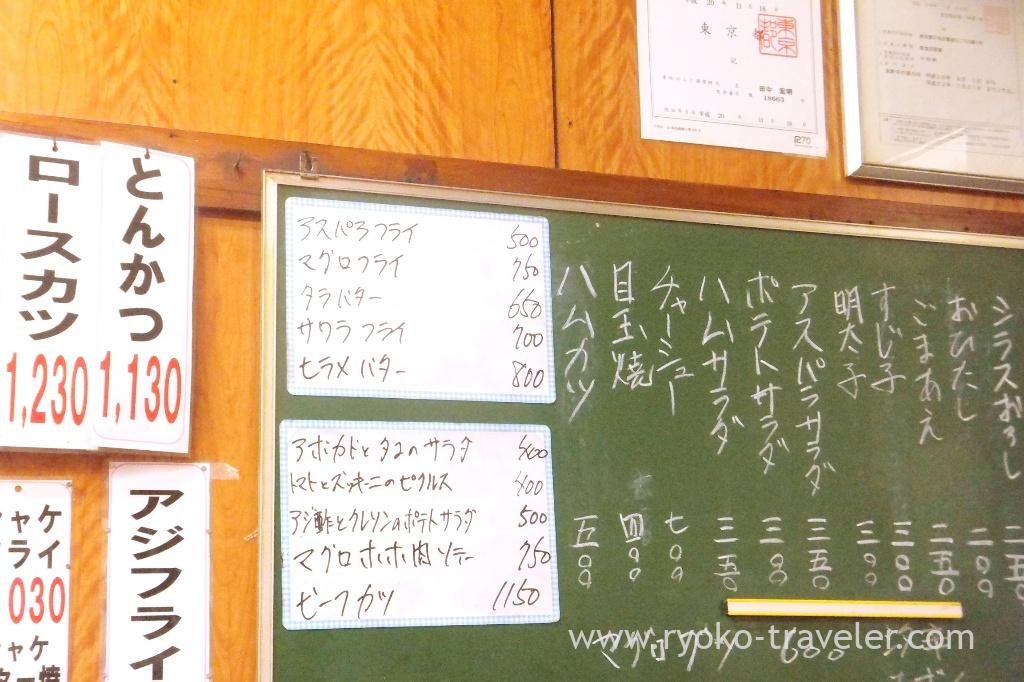 平成 20年 11月 18日
東京
記
田中
18663
平成 20年 11月 18日
1270
とんかつ
1,130
ロースカツ
1,230
アジフライ
ャケ
ライ
030
ャケ
ター焼
アスパラフライ 500
マグロフライ 750
タラバター 650
サワラフライ 700
ヒラメバター 800
アボカドとタコのサラダ 400
トマトとズッキーニのピクルス 400
アジ酢とクレソンのポテトサラダ 500
マグロホホ肉ソテー 750
ビーフカツ 1150
シラスおろし
おひたし 二〇〇
ごまあえ 二五〇
すじ子 三〇〇
明太子 三〇〇
アスパラサラダ 三五〇
ポテトサラダ 三〇〇
ハムサラダ 三五〇
チャーシュー 七〇〇
目玉焼 四〇〇
ハムカツ 五〇〇
マグロ 600
www.ryoko-traveler.com